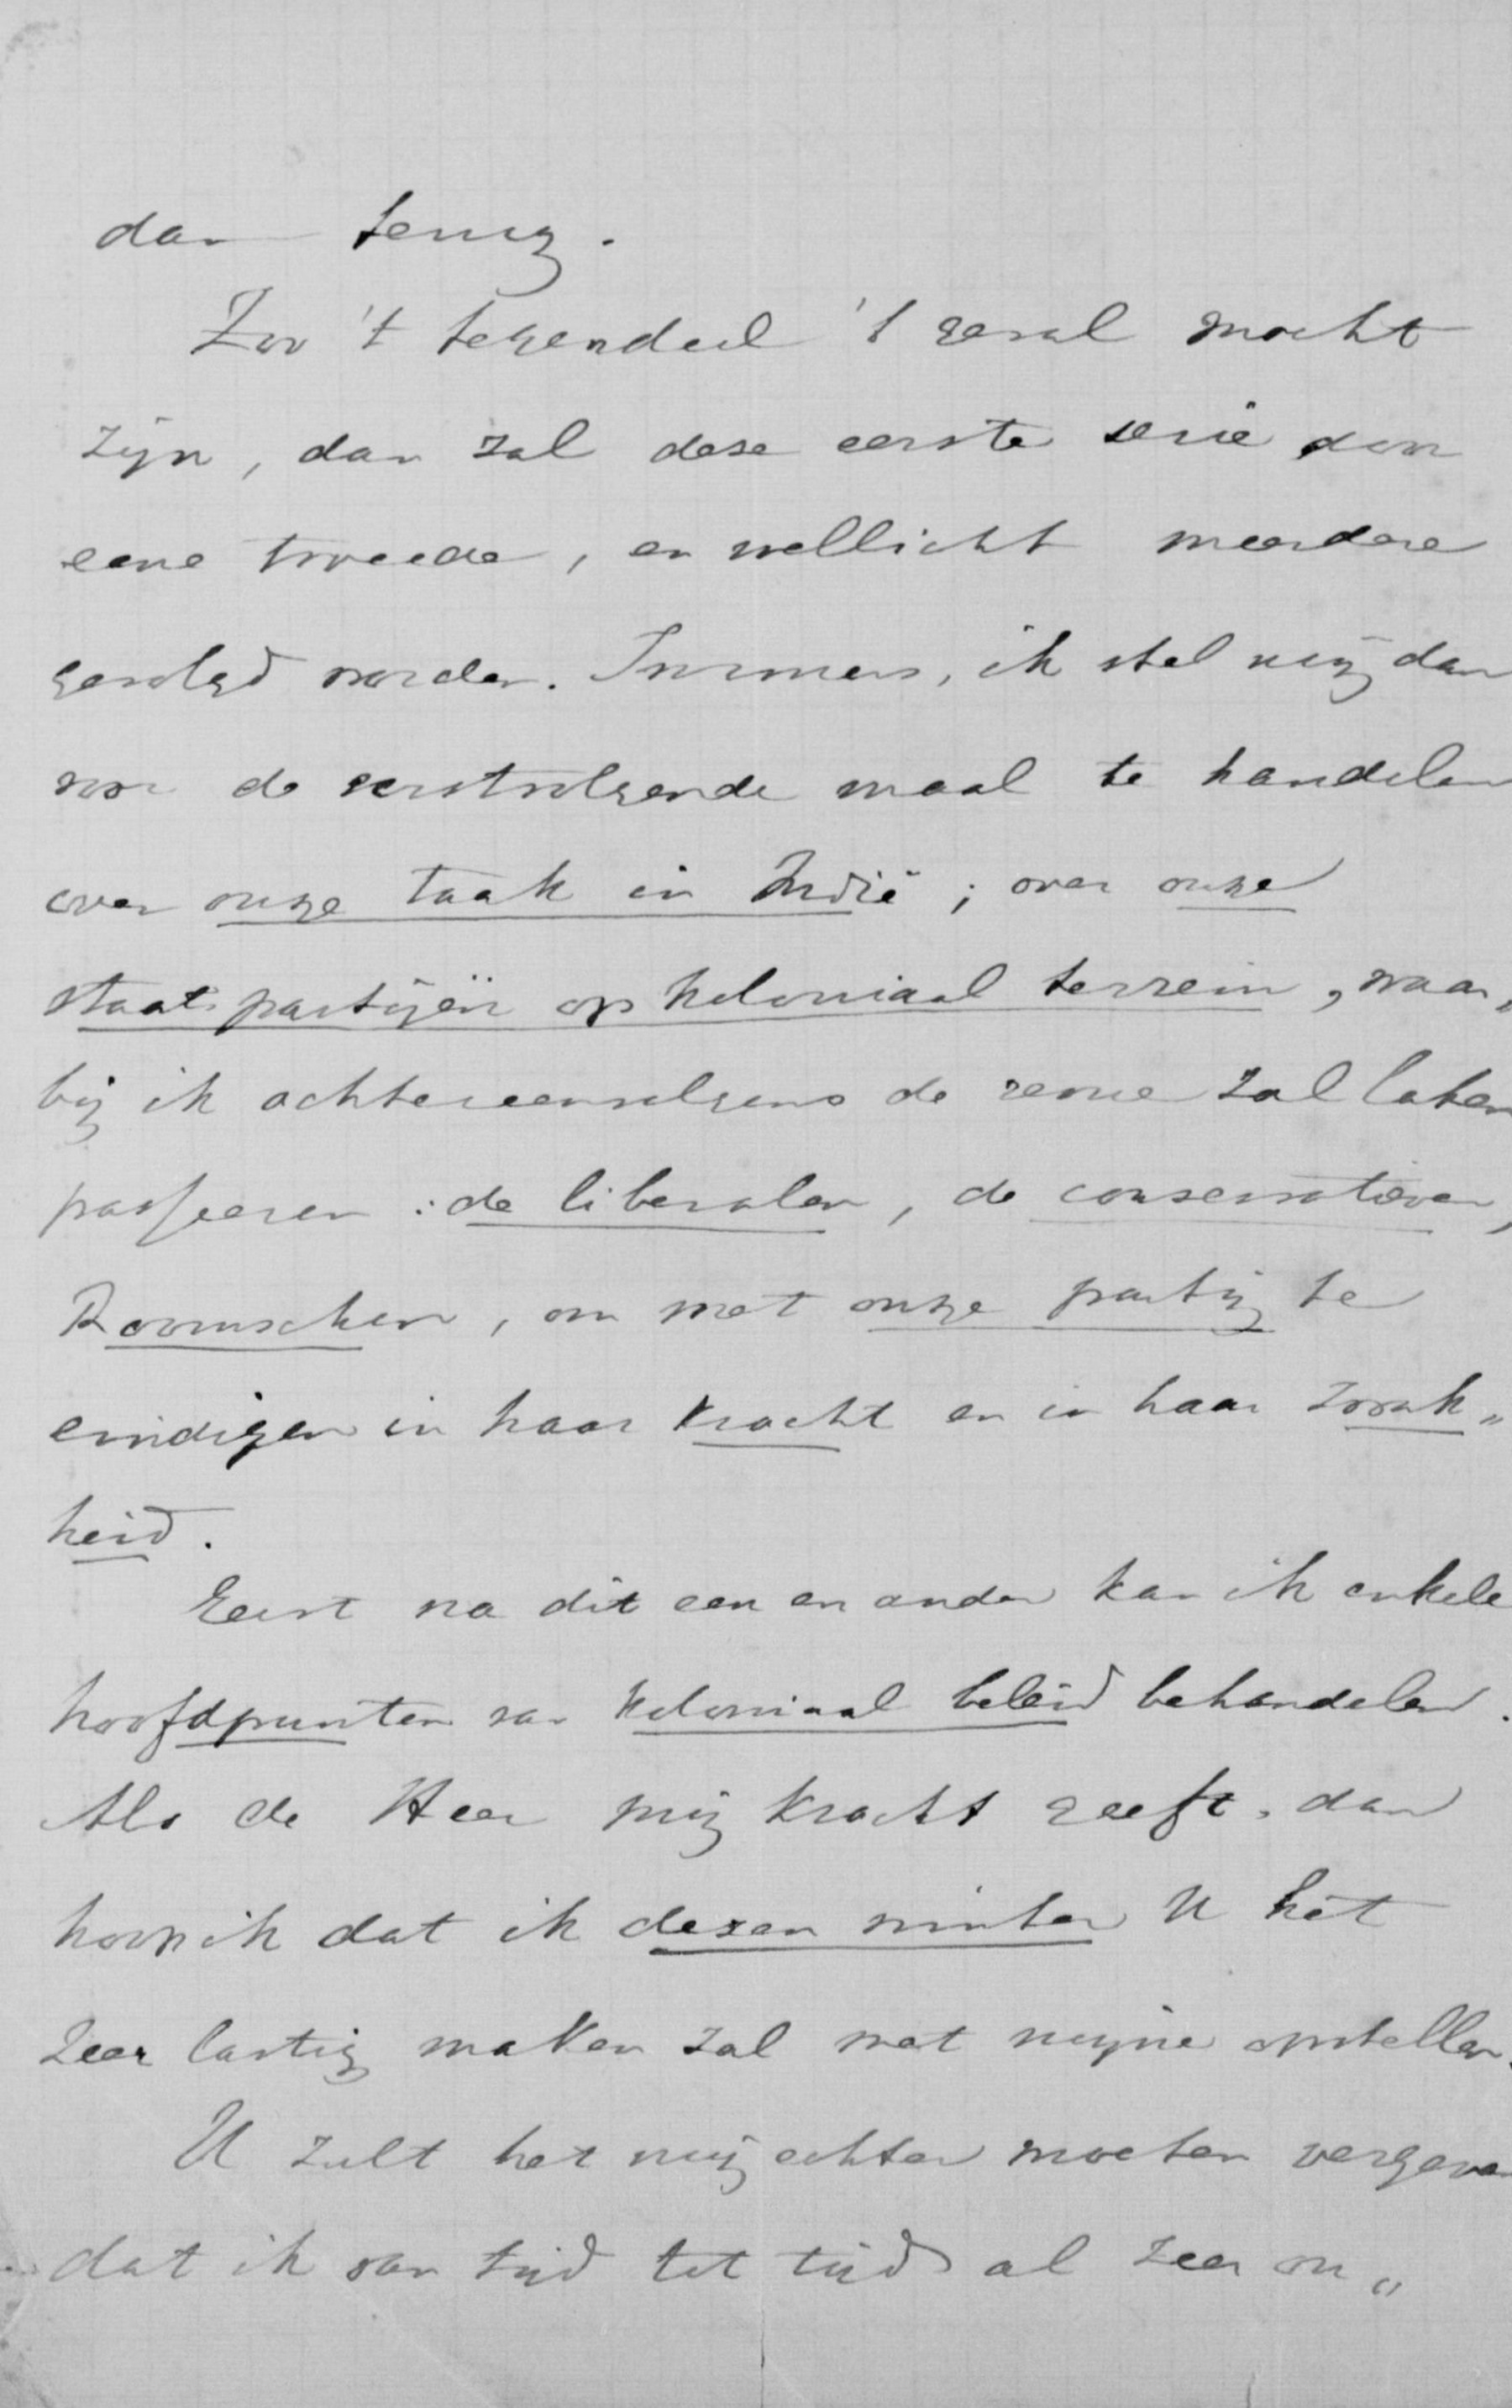 dan terug.
Zoo 't tegendeel 't geval mocht
zijn, dan zal deze eerste serie door
eene tweede, en wellicht meerdere
gevolgd worden. Immers, ik stel mij dan
voor de eerstvolgende maal te handelen
over onze taak in Indië; over onze
staatspartijen op koloniaal terrein, waar„
bij ik achtereenvolgens de revue zal laten
passeeren: de liberalen, de conservatieven,
Roomschen, om met onze partij te
eindigen in haar kracht en in haar zwak„
heid.
Eerst na dit een en ander kan ik enkele
hoofdpunten van koloniaal beleid behandelen.
Als de Heer mij kracht geeft, dan
hoop ik dat ik dezen winter U het
zeer lastig maken zal met mijne opstellen.
U zult het mij echter moeten vergeven
dat ik van tijd tot tijd al zeer on„